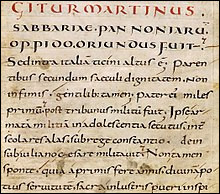 GITUR MARTINUS
SABBARIAE PANNONIARU
OPPIDO ORIUNDUS FUIT
Sed intra italia ticini altus est. Paren
tibus secundum saeculi dignitatem. Non
infimis. gentilib; tamen. Pater ei miles
primu. post tribunus militu fuit. Ipse ar
mata militia in adolescentia secutus int
scolares alas sub rege constantio. dein
sub iuliano cesare militavit. Non tamen
sponte. quia a primis fere annis divinam potius
servitute. sacra inlustris pueri inspi